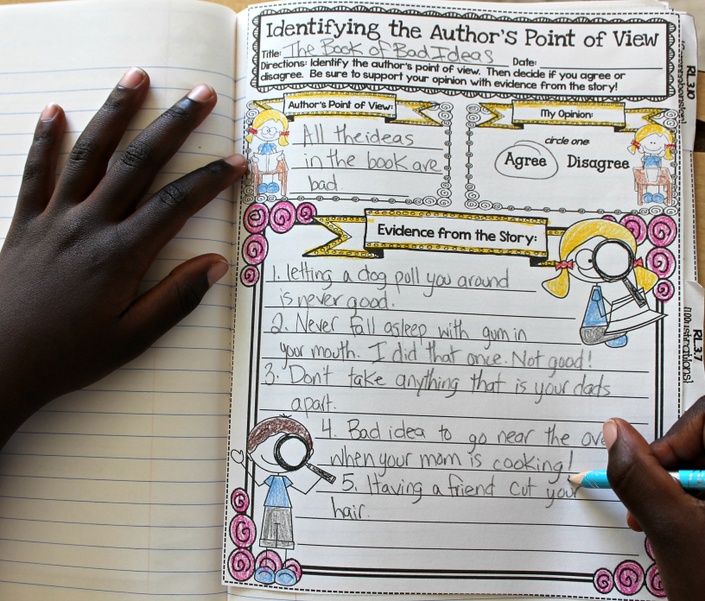 Identifying the Author's Point of View
Title: The Book of Bad Ideas Date:
Directions: Identify the author's point of view. Then decide if you agree or
disagree. Be sure to support your opinion with evidence from the story!
Author's Point of View:
All the ideas
in the book are
bad.
My Opinion:
circle one:
Agree Disagree
Evidence from the Story:
1. letting a dog poll you around
is never good.
2. Never fall asleep with gum in
your mouth. I did that once. Not good!
3. Don't take anything that is your dads
apart.
4. Bad idea to go near the ove
when your mom is cooking!
5. Having a friend cut your
hair.
RL.3.10
RL.3.7